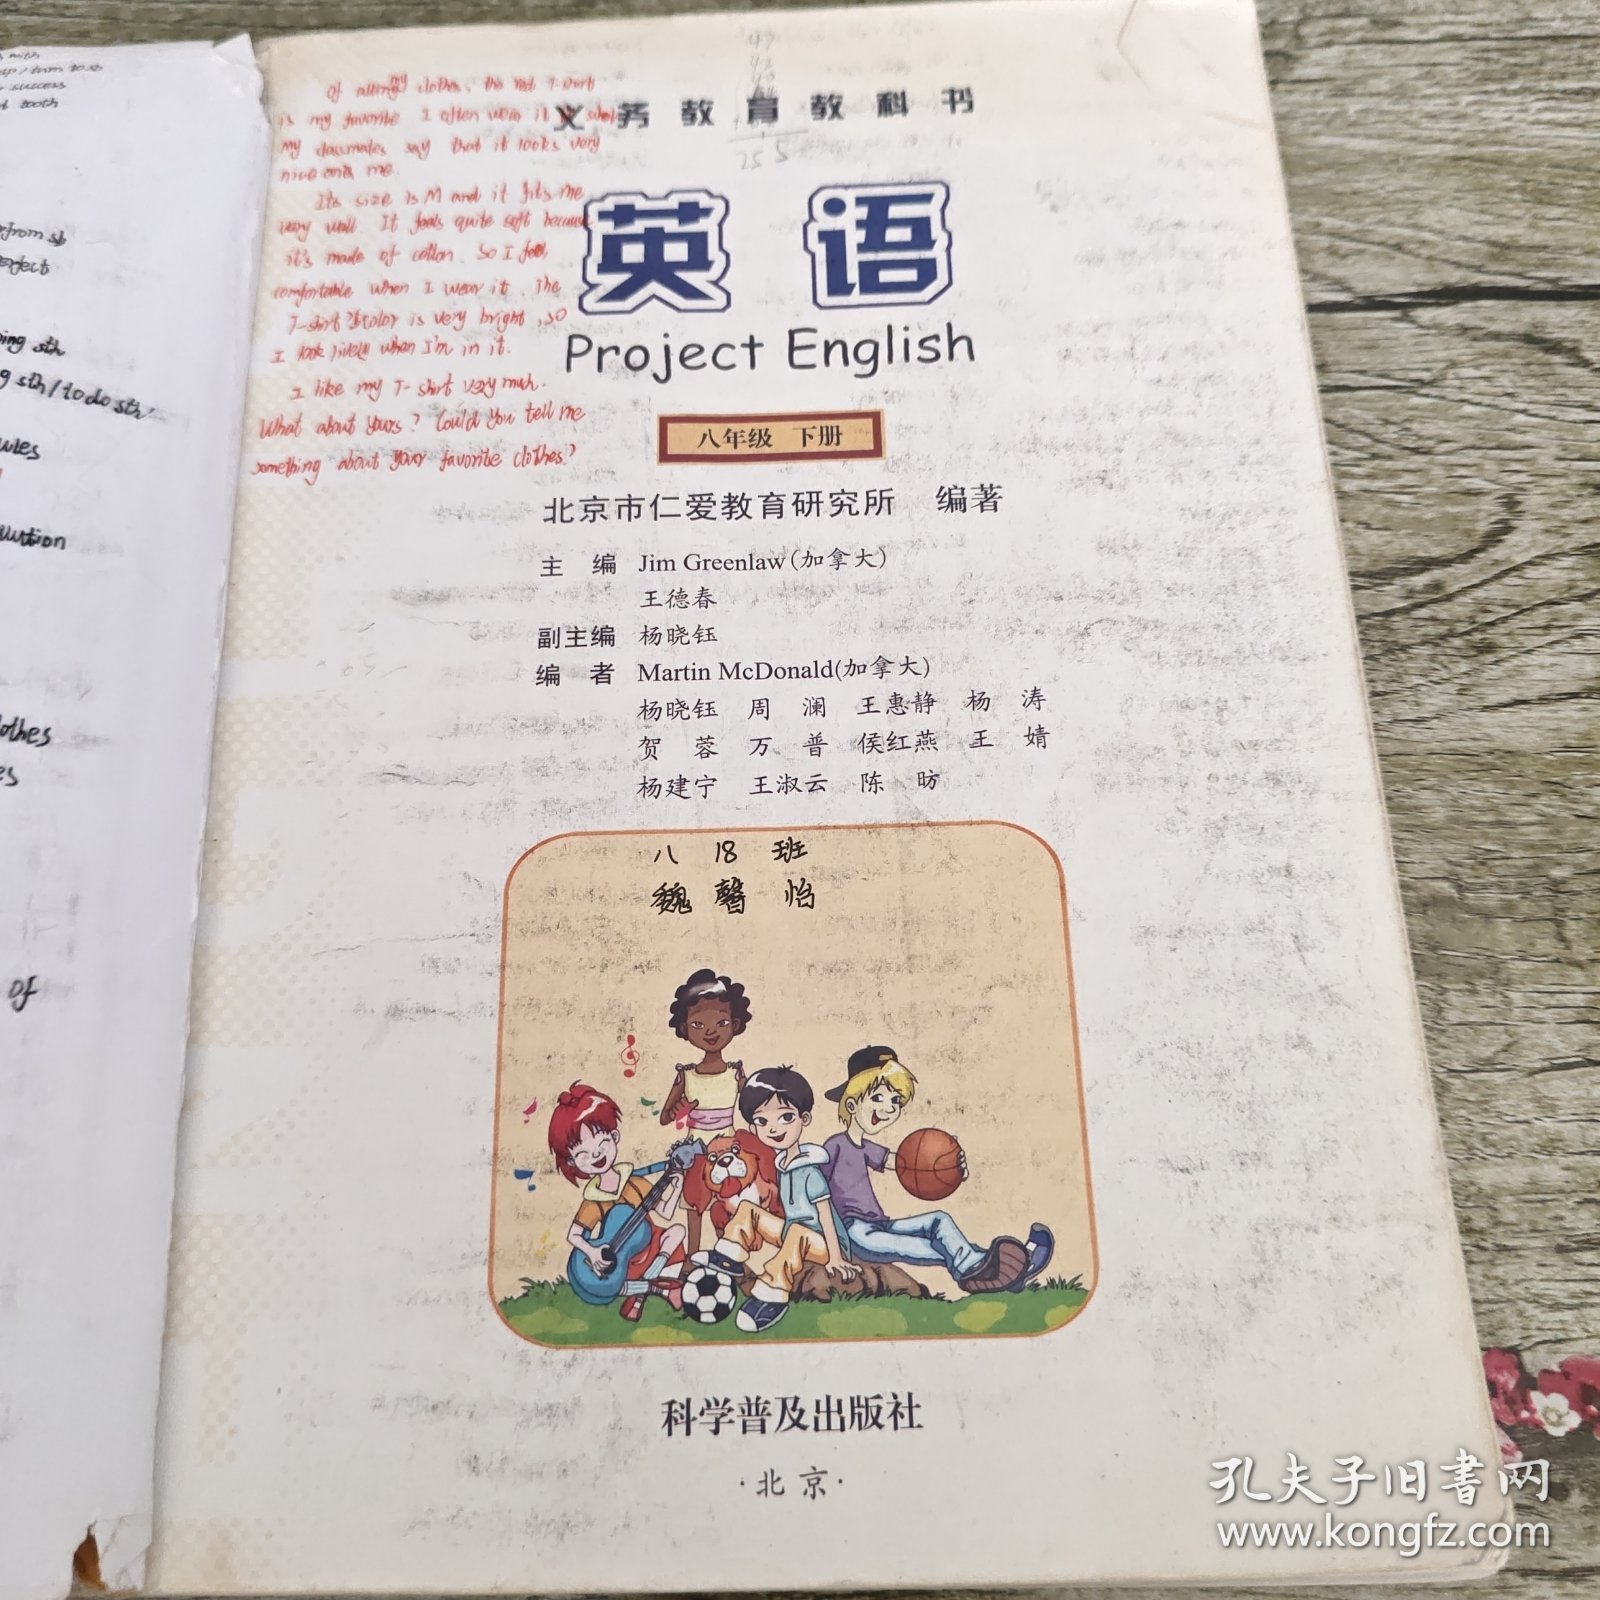 with
success
tooth
from sb
perfect
ing sth
g sth / to do sth
ules
lution
lothes
es
of
Of all my clothes, the red T-shirt
is my favorite I often wear it
my classmates say that it looks very
nice on me.
Its size is M and it fits me
very well. It feels quite soft because
it's made of cotton. So I feel
comfortable when I wear it. The
T-shirt's color is very bright, so
I look lively when I'm in it.
I like my T-shirt very much.
What about yours? Could you tell me
something about your favorite clothes?
义务教育教科书
英语
Project English
八年级 下册
北京市仁爱教育研究所 编著
主 编 Jim Greenlaw(加拿大)
王德春
副主编 杨晓钰
编 者 Martin McDonald(加拿大)
杨晓钰 周 澜 王惠静 杨 涛
贺 蓉 万 普 侯红燕 王 婧
杨建宁 王淑云 陈 昉
八 18 班
魏馨怡
科学普及出版社
·北京·
孔夫子旧书网
www.kongfz.com